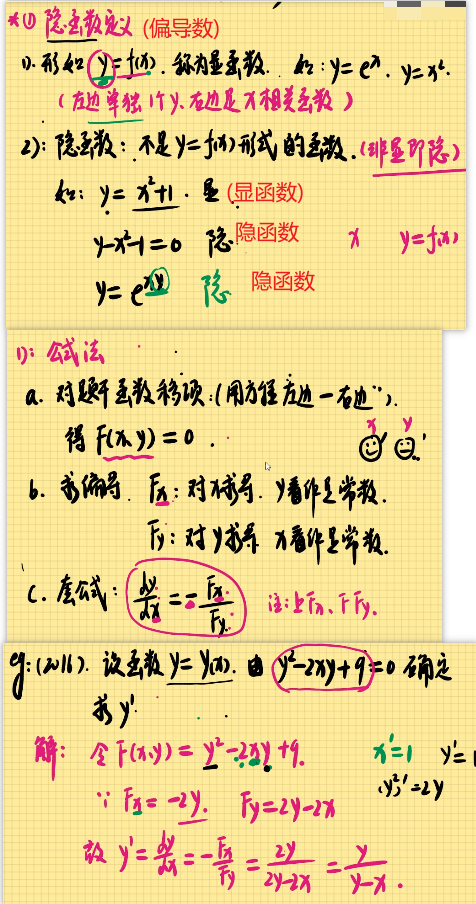 *(1) 隐函数定义 (偏导数)
1). 形如 y=f(x). 称为显函数. 如: y=eˣ. y=x².
(左边单独1个y.右边是x相关函数)
2): 隐函数: 不是y=f(x)形式的函数.(非显即隐)
如: y=x²+1. 显 (显函数)
y-x²-1=0 隐 隐函数 x y=f(x)
y=e^{xy} 隐 隐函数
1): 公式法
a. 对题干函数移项:(用方程左边-右边").
得 F(x,y)=0.
x y
b. 求偏导. Fx: 对x求导. y看作是常数.
Fy: 对y求导 x看作是常数.
c. 套公式: dy/dx = -Fx/Fy. 注:上Fx、下Fy.
eg:(2016). 设函数 y=y(x). 由 y²-2xy+9=0 确定
求y'.
解: 令F(x,y)=y²-2xy+9. x'=1 y'=1
∵ Fx=-2y. Fy=2y-2x (y²)'=2y
故 y'=dy/dx=-Fx/Fy=2y/(2y-2x)=y/(y-x).